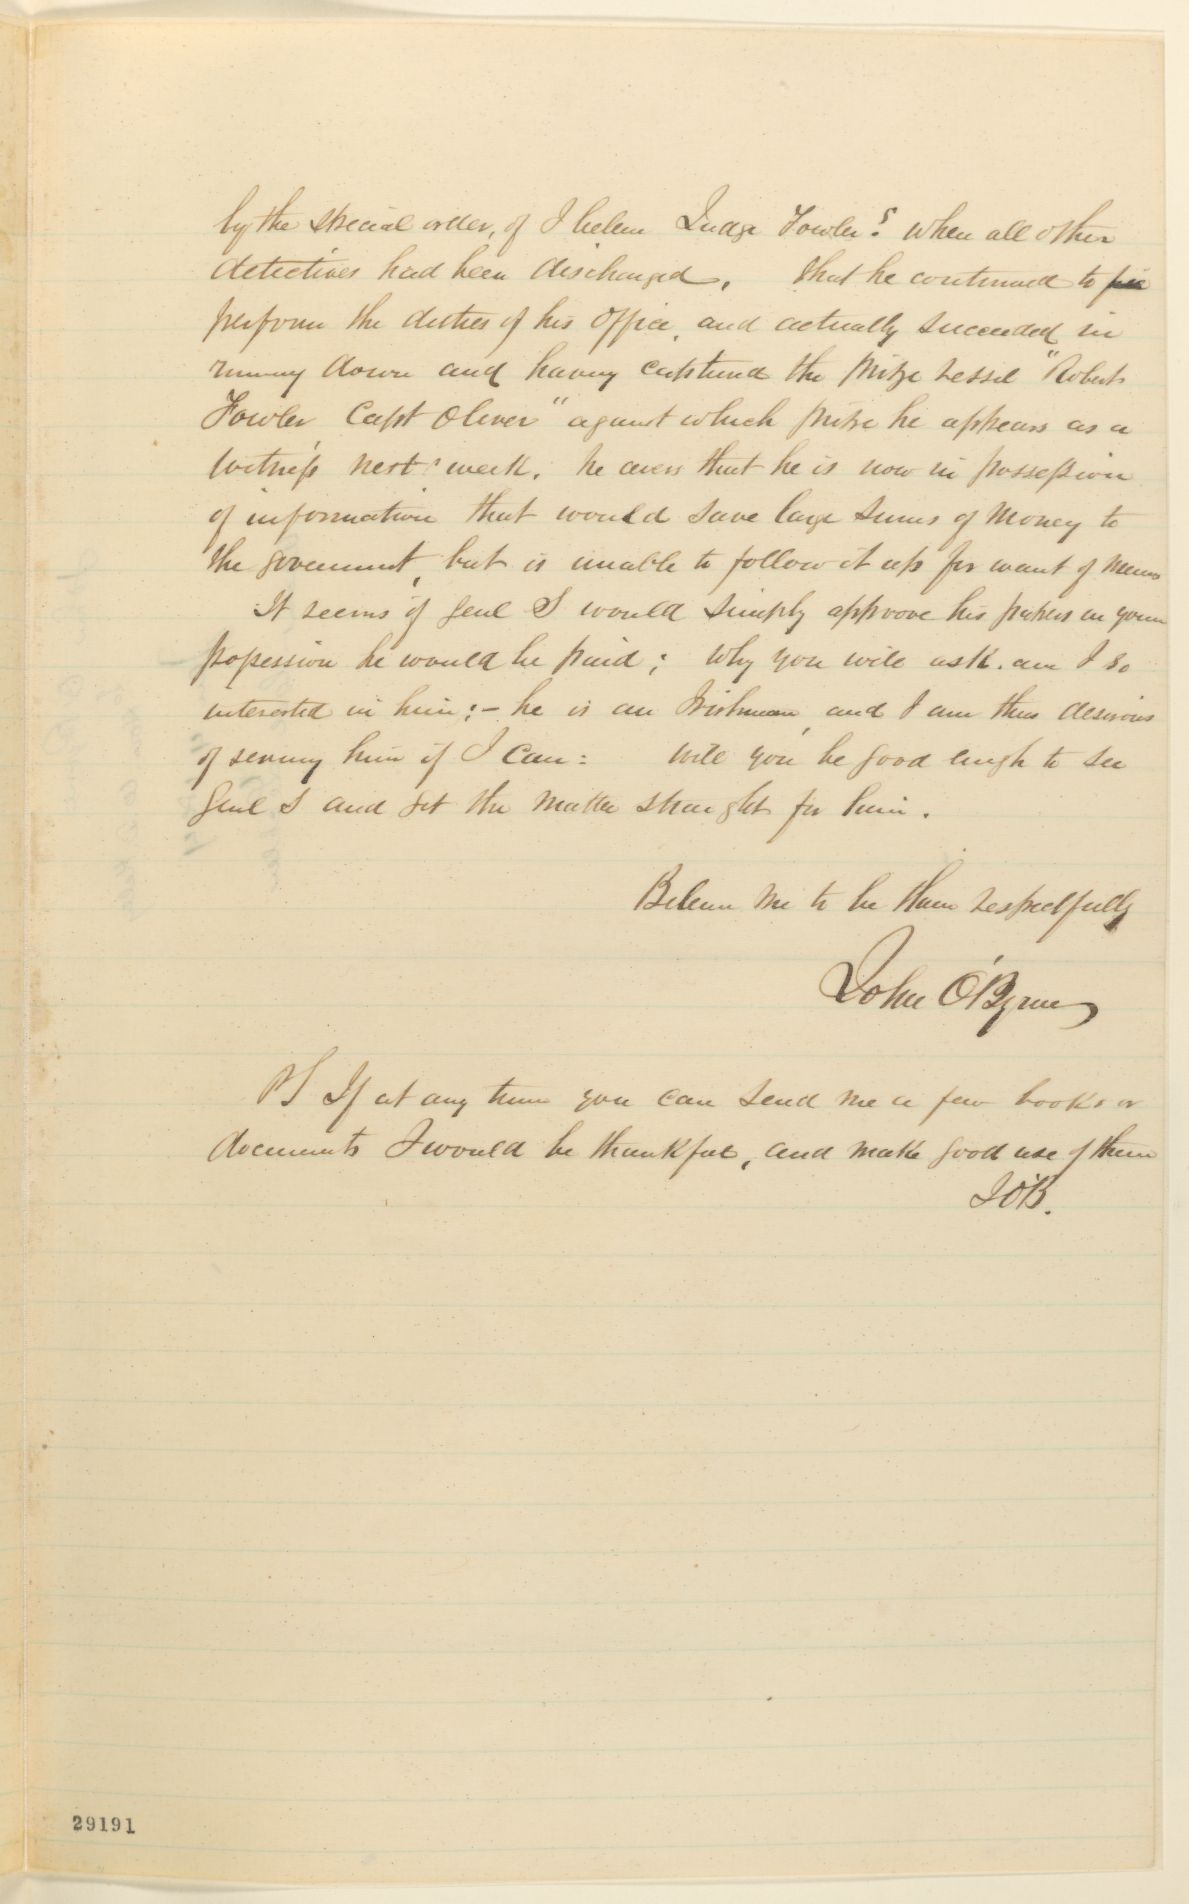 by the special order, of I believe Judge Fowler's when all other
detectives had been discharged. that he continued to
perform the duties of his office, and actually succeeded in
runing down and having captured the prize vessel "Roberts
Fowler Capt Oliver" against which prize he appears as a
witness next week. he avers that he is now in possession
of information that would save large sums of money to
the goverment, but is unable to follow it up for want of means
It seems if Genl S would simply approve his papers in your
possession he would be paid; Why you will ask. am I so
interested in him:- he is an Irishman, and I am thus desirous
of serving him if I can: Will you be good enugh to see
Genl S and get the matter straight for him.
Believe me to be Thine respectfully
John O'Byrne
PS If at any time you can send me a few books or
documents I would be thankful, and make good use of them
JO'B.
29191